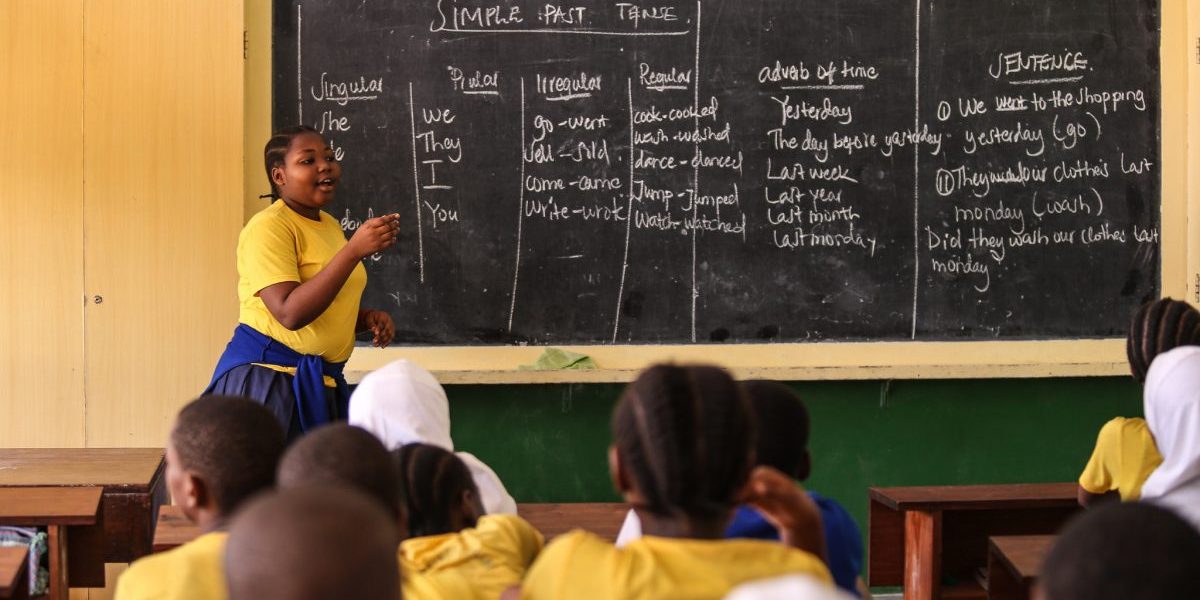 SIMPLE PAST TENSE.
Singular
She
Plural
We
They
I
You
Irregular
go-went
Sell-Sold
come-came
write-wrote
Regular
cook-cooked
wash-washed
dance-danced
Jump-Jumped
Watch-watched
adverb of time
Yesterday
The day before yesterday
Last week
Last year
Last month
Last monday
SENTENCE.
(i) We went to the shopping
yesterday (go)
(ii) They our clothes last
monday (wash)
Did they wash our clothes last
monday